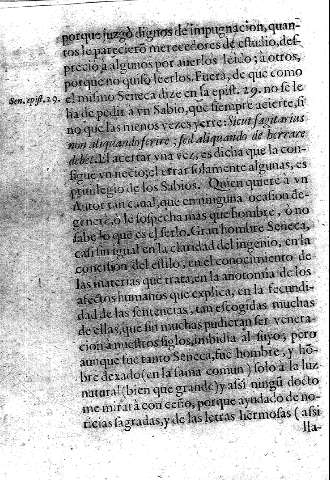 porque juzgò dignos de impugnacion, quan-
tos le parecierõ merecedores de estudio, des-
preciò a algunos por auerlos leido; a otros,
porque no quiso leerlos. Fuera, de que como
Sen. epist. 29.
el mismo Seneca dize en la epist. 29. no se le
ha de pedir a vn Sabio, que siempre acierte, si
no que las menos vezes yerre: Sicut sagitarius
non aliquando ferire; sed aliquando de herrare
debet. El acertar vna vez, es dicha que la con-
sigue vn necio; el errar solamente algunas, es
priuilegio de los Sabios. Quien quiere a vn
Autor tan cabal, que en ninguna ocasion de-
genere, ò le sospecha mas que hombre, ò no
sabe lo que es el serlo. Gran hombre Seneca,
casi sin igual en la claridad del ingenio, en la
concision del estilo, en el conocimiento de
las materias que trata, en la anotomia de los
afectos humanos que explica, en la fecundi-
dad de las sentencias, tan escogidas muchas
de ellas, que sin muchas pudieran ser venera-
cion a nuestros siglos, imbidia al suyo; pero
aunque fue tanto Seneca, fue hombre, y hõ-
bre dexado (en la fama comun) solo a la luz
natural (bien que grande) y assi ningũ docto
me mirarà con ceño, porque ayudado de no-
ticias sagradas, y de las letras hermosas (assi
lla-